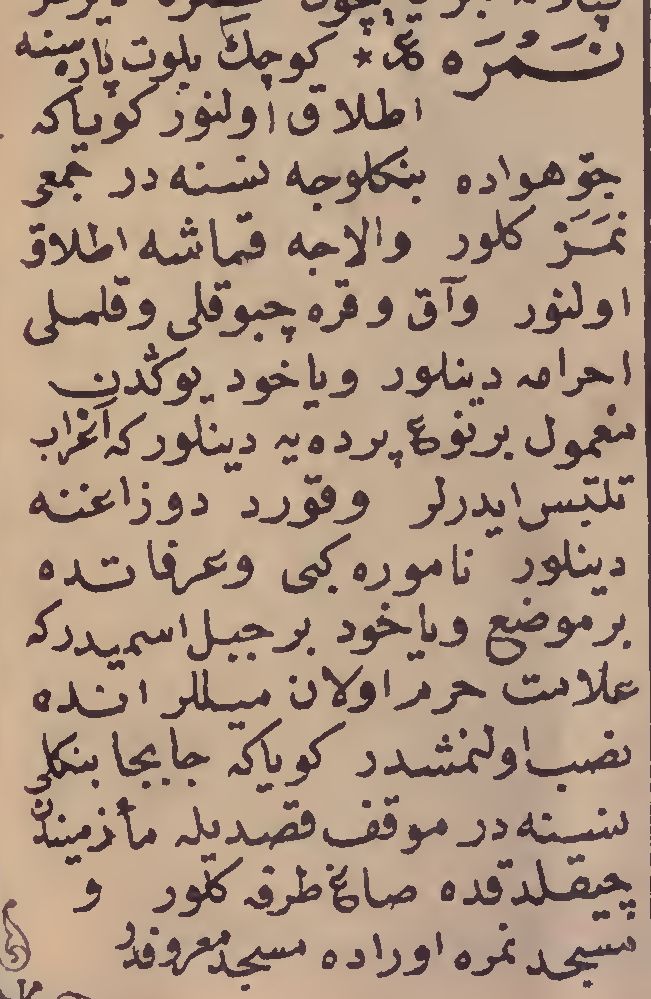 نَمِرَه ع * كوچك بلوت پاره سنه
اطلاق اولنور كوياكه
جوّ هواده بنكلوجه نسنه در جمعى
نَمِر كلور والاجه قماشه اطلاق
اولنور وآق و قره چبوقلى وقلملى
احرامه دينلور وياخود يوكدن
معمول بر نوع پرده يه دينلور كه اعراب
تلبّس ايدرلر وقورد دوزاغنه
دينلور ناموره كبى وعرفاتده
بر موضع وياخود بر جبل اسميدر كه
علامت حرم اولان ميللر انده
نصب اولنمشدر كوياكه جابجا بنكلى
نسنه در موقف قصديله مأزميندن
چيقلدقده صاغ طرفه كلور و
مسجد نمره اوراده مسجد معروفدر